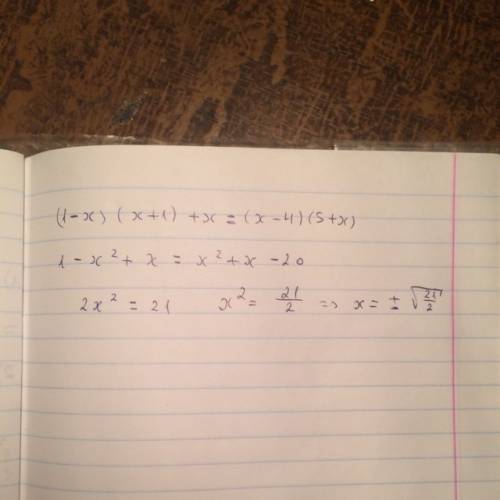 (1-x) (x+1) +x = (x-4)(5+x)
1 - x² + x = x² + x - 20
2x² = 21 x² = 21/2 => x = ± √(21/2)